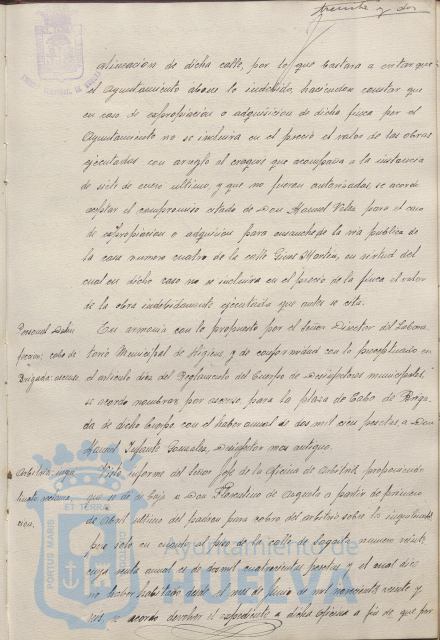 treinta y dos
alineación de dicha calle, por lo que bastara a evitar que
el Ayuntamiento abone lo indebido, haciendose constar que
en caso de expropiación o adquisición de dicha finca por el
Ayuntamiento no se incluira en el precio el valor de las obras
ejecutadas con arreglo al croquis que acompaña a la instancia
de siete de enero ultimo, y que no fueron autorizadas, se acordo
aceptar el compromiso citado de Don Manuel Velez para el caso
de expropiación o adquisición para ensanche de la via publica de
la casa numero cuatro de la calle Ginés Martín, en virtud del
cual en dicho caso no se incluira en el precio de la finca el valor
de la obra indebidamente ejecutada que antes se cita.
Personal Desin
fección: cabo de
Brigada: ascenso.
En armonia con lo propuesto por el Señor Director del Labora
torio Municipal de Higiene y de conformidad con lo preceptuado en
el articulo diez del Reglamento del Cuerpo de Desinfectores municipales,
se acordo nombrar, por ascenso, para la plaza de Cabo de Briga
da de dicho Cuerpo con el haber anual de dos mil cien pesetas, a Don
Manuel Infante Gonzalez, Desinfector mas antiguo.
Arbitrio, inqui
linato, reclama
ción.
Visto informe del Señor Jefe de la Oficina de Arbitrios proponiendo
que se dé de baja a Don Florentino de Azqueta a partir de primero
de Abril ultimo del padron para cobro del arbitrio sobre la inquilinato
pero solo en cuanto al piso de la calle de Sagasta numero veinte
cuya renta anual es de dos mil cuatrocientas pesetas y el cual dice
no haber habitado desde el mes de Junio de mil novecientos veinte y
seis, se acordo devolver el expediente a dicha Oficina a fin de que por
PORTUS MARIS ET TERRAE
Ayuntamiento de
HUELVA